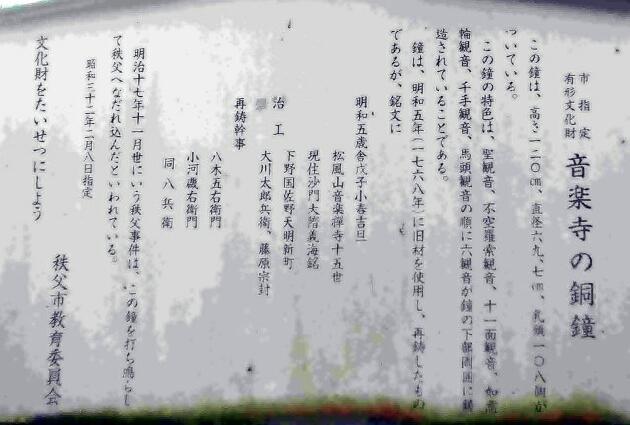 市指定
有形文化財
音楽寺の銅鐘
この鐘は、高さ一二〇㎝、直径六九、七㎝、乳頭一〇八個が
ついている。
この鐘の特色は、聖観音、不空羅索観音、十一面観音、如意
輪観音、千手観音、馬頭観音の順に六観音が鐘の下部周囲に鋳
造されていることである。
鐘は、明和五年(一七六八年)に旧材を使用し、再鋳したもの
であるが、銘文に
明和五歳舎戊子小春吉旦
松風山音楽禅寺十五世
現住沙門大陰義海銘
下野国佐野天明新町
治工
大川太郎兵衛、藤原宗封
再鋳幹事
八木五右衛門
小河磯右衛門
同八兵衛
明治十七年十一月世にいう秩父事件は、この鐘を打ち鳴らし
て秩父へなだれ込んだといわれている。
昭和三十二年二月八日指定
文化財をたいせつにしよう
秩父市教育委員会